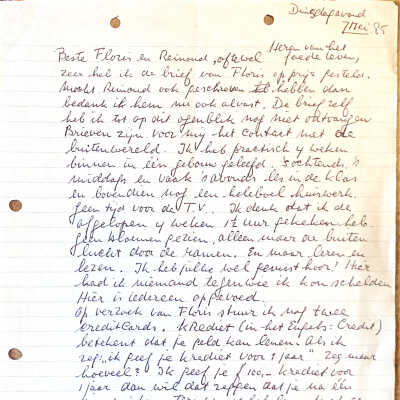 Dinsdagavond
7 Mei '85
Beste Floris en Reinoud, oftewel Heren van het goede leven,
zeer heb ik de brief van Floris op prijs gesteld.
Mocht Reinoud ook geschreven hebben dan
bedank ik hem nu ook alvast. De brief zelf
heb ik tot op dit ogenblik nog niet ontvangen
Brieven zijn voor mij het contact met de
buitenwereld. Ik heb practisch 4 weken
binnen in één gebouw geleefd. 's ochtends, 's
middags en vaak 's avonds les in de klas
en bovendien nog een heleboel huiswerk.
Geen tijd voor de T.V. Ik denk dat ik de
afgelopen 4 weken 1½ uur gekeken heb.
Geen bloemen gezien, alleen maar de buiten
lucht door de ramen. En maar leren en
lezen. Ik heb jullie wel gemist hoor! Hier
had ik niemand tegen wie ik kon schelden
Hier is iedereen opgevoed.
Op verzoek van Floris stuur ik nog twee
creditcards. KRediet (in het Engels: Credit)
betekent dat je geld kan lenen. Als ik
zeg: ik geef je krediet voor 1 jaar" zeg maar
hoeveel? Ik geef je f 100,- krediet voor
1 jaar dan wil dat zeggen dat je na één